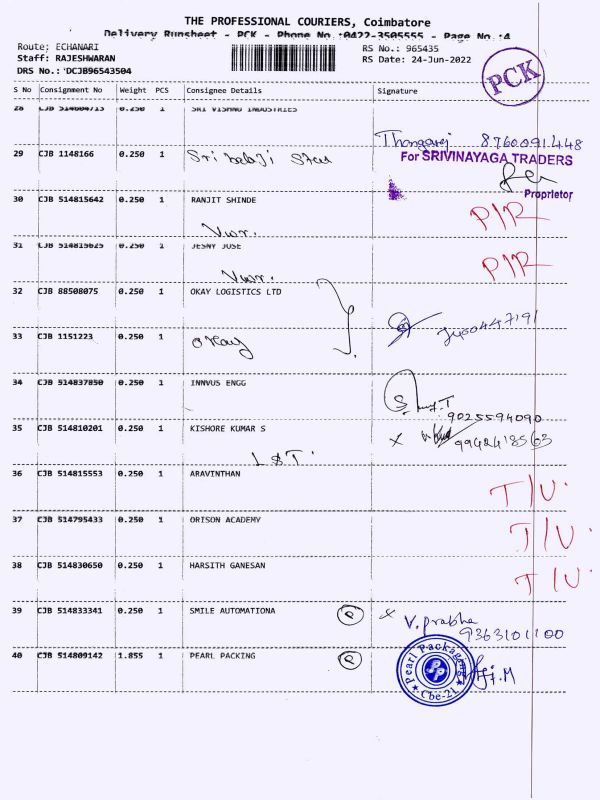 THE PROFESSIONAL COURIERS, Coimbatore
Delivery Runsheet - PCK - Phone No.:0422-3505555 - Page No.:4
Route; ECHANARI
Staff: RAJESHWARAN
DRS No.: DCJB96543504
RS No.: 965435
RS Date: 24-Jun-2022
PCK
S No Consignment No Weight PCS Consignee Details Signature
28 CJB 514804713 0.250 1 SRI VISHNU INDUSTRIES
Thangaraj 8760091448
29 CJB 1148166 0.250 1 Sri balaji Steel
For SRIVINAYAGA TRADERS
Proprietor
30 CJB 514815642 0.250 1 RANJIT SHINDE
P/R
31 CJB 514815625 0.250 1 JESNY JOSE
P/R
32 CJB 88508075 0.250 1 OKAY LOGISTICS LTD
33 CJB 1151223 0.250 1 Okay
34 CJB 514837850 0.250 1 INNVUS ENGG
9025594090
35 CJB 514810201 0.250 1 KISHORE KUMAR S
x 9942418563
L & T.
36 CJB 514815553 0.250 1 ARAVINTHAN
T/U.
37 CJB 514795433 0.250 1 ORISON ACADEMY
T/U.
38 CJB 514830650 0.250 1 HARSITH GANESAN
T/U.
39 CJB 514833341 0.250 1 SMILE AUTOMATIONA P x V. prabha
9363101100
40 CJB 514809142 1.855 1 PEARL PACKING P
Pearl Packagings
PP
Cbe-21